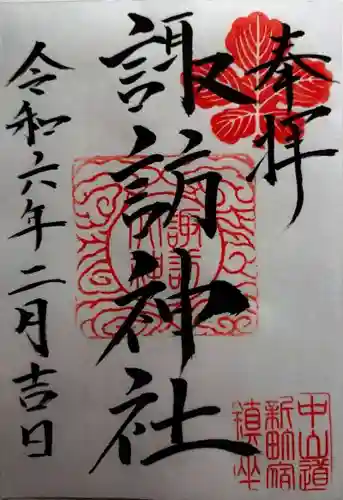 奉拝
諏訪神社
令和六年二月吉日
中山道
新町宿
鎮坐